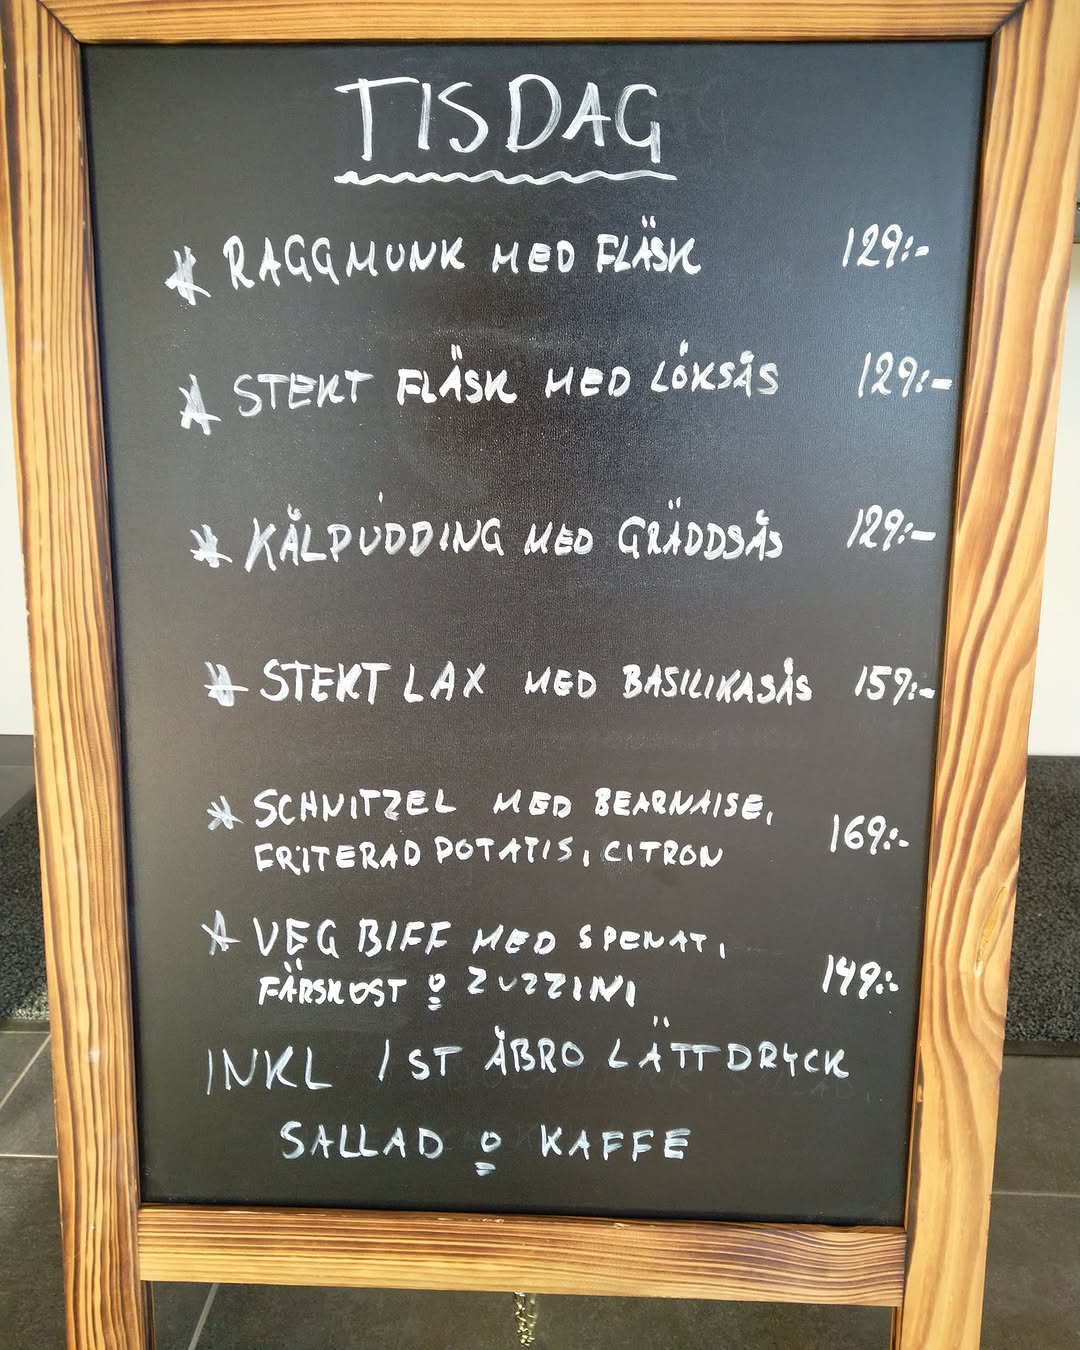 TISDAG
* RAGGMUNK MED FLÄSK 129:-
* STEKT FLÄSK MED LÖKSÅS 129:-
* KÅLPUDDING MED GRÄDDSÅS 129:-
* STEKT LAX MED BASILIKASÅS 159:-
* SCHNITZEL MED BEARNAISE,
FRITERAD POTATIS, CITRON 169:-
* VEG BIFF MED SPENAT,
FÄRSKOST o ZUZZINI 149:-
INKL 1 ST ÅBRO LÄTTDRYCK
SALLAD o KAFFE